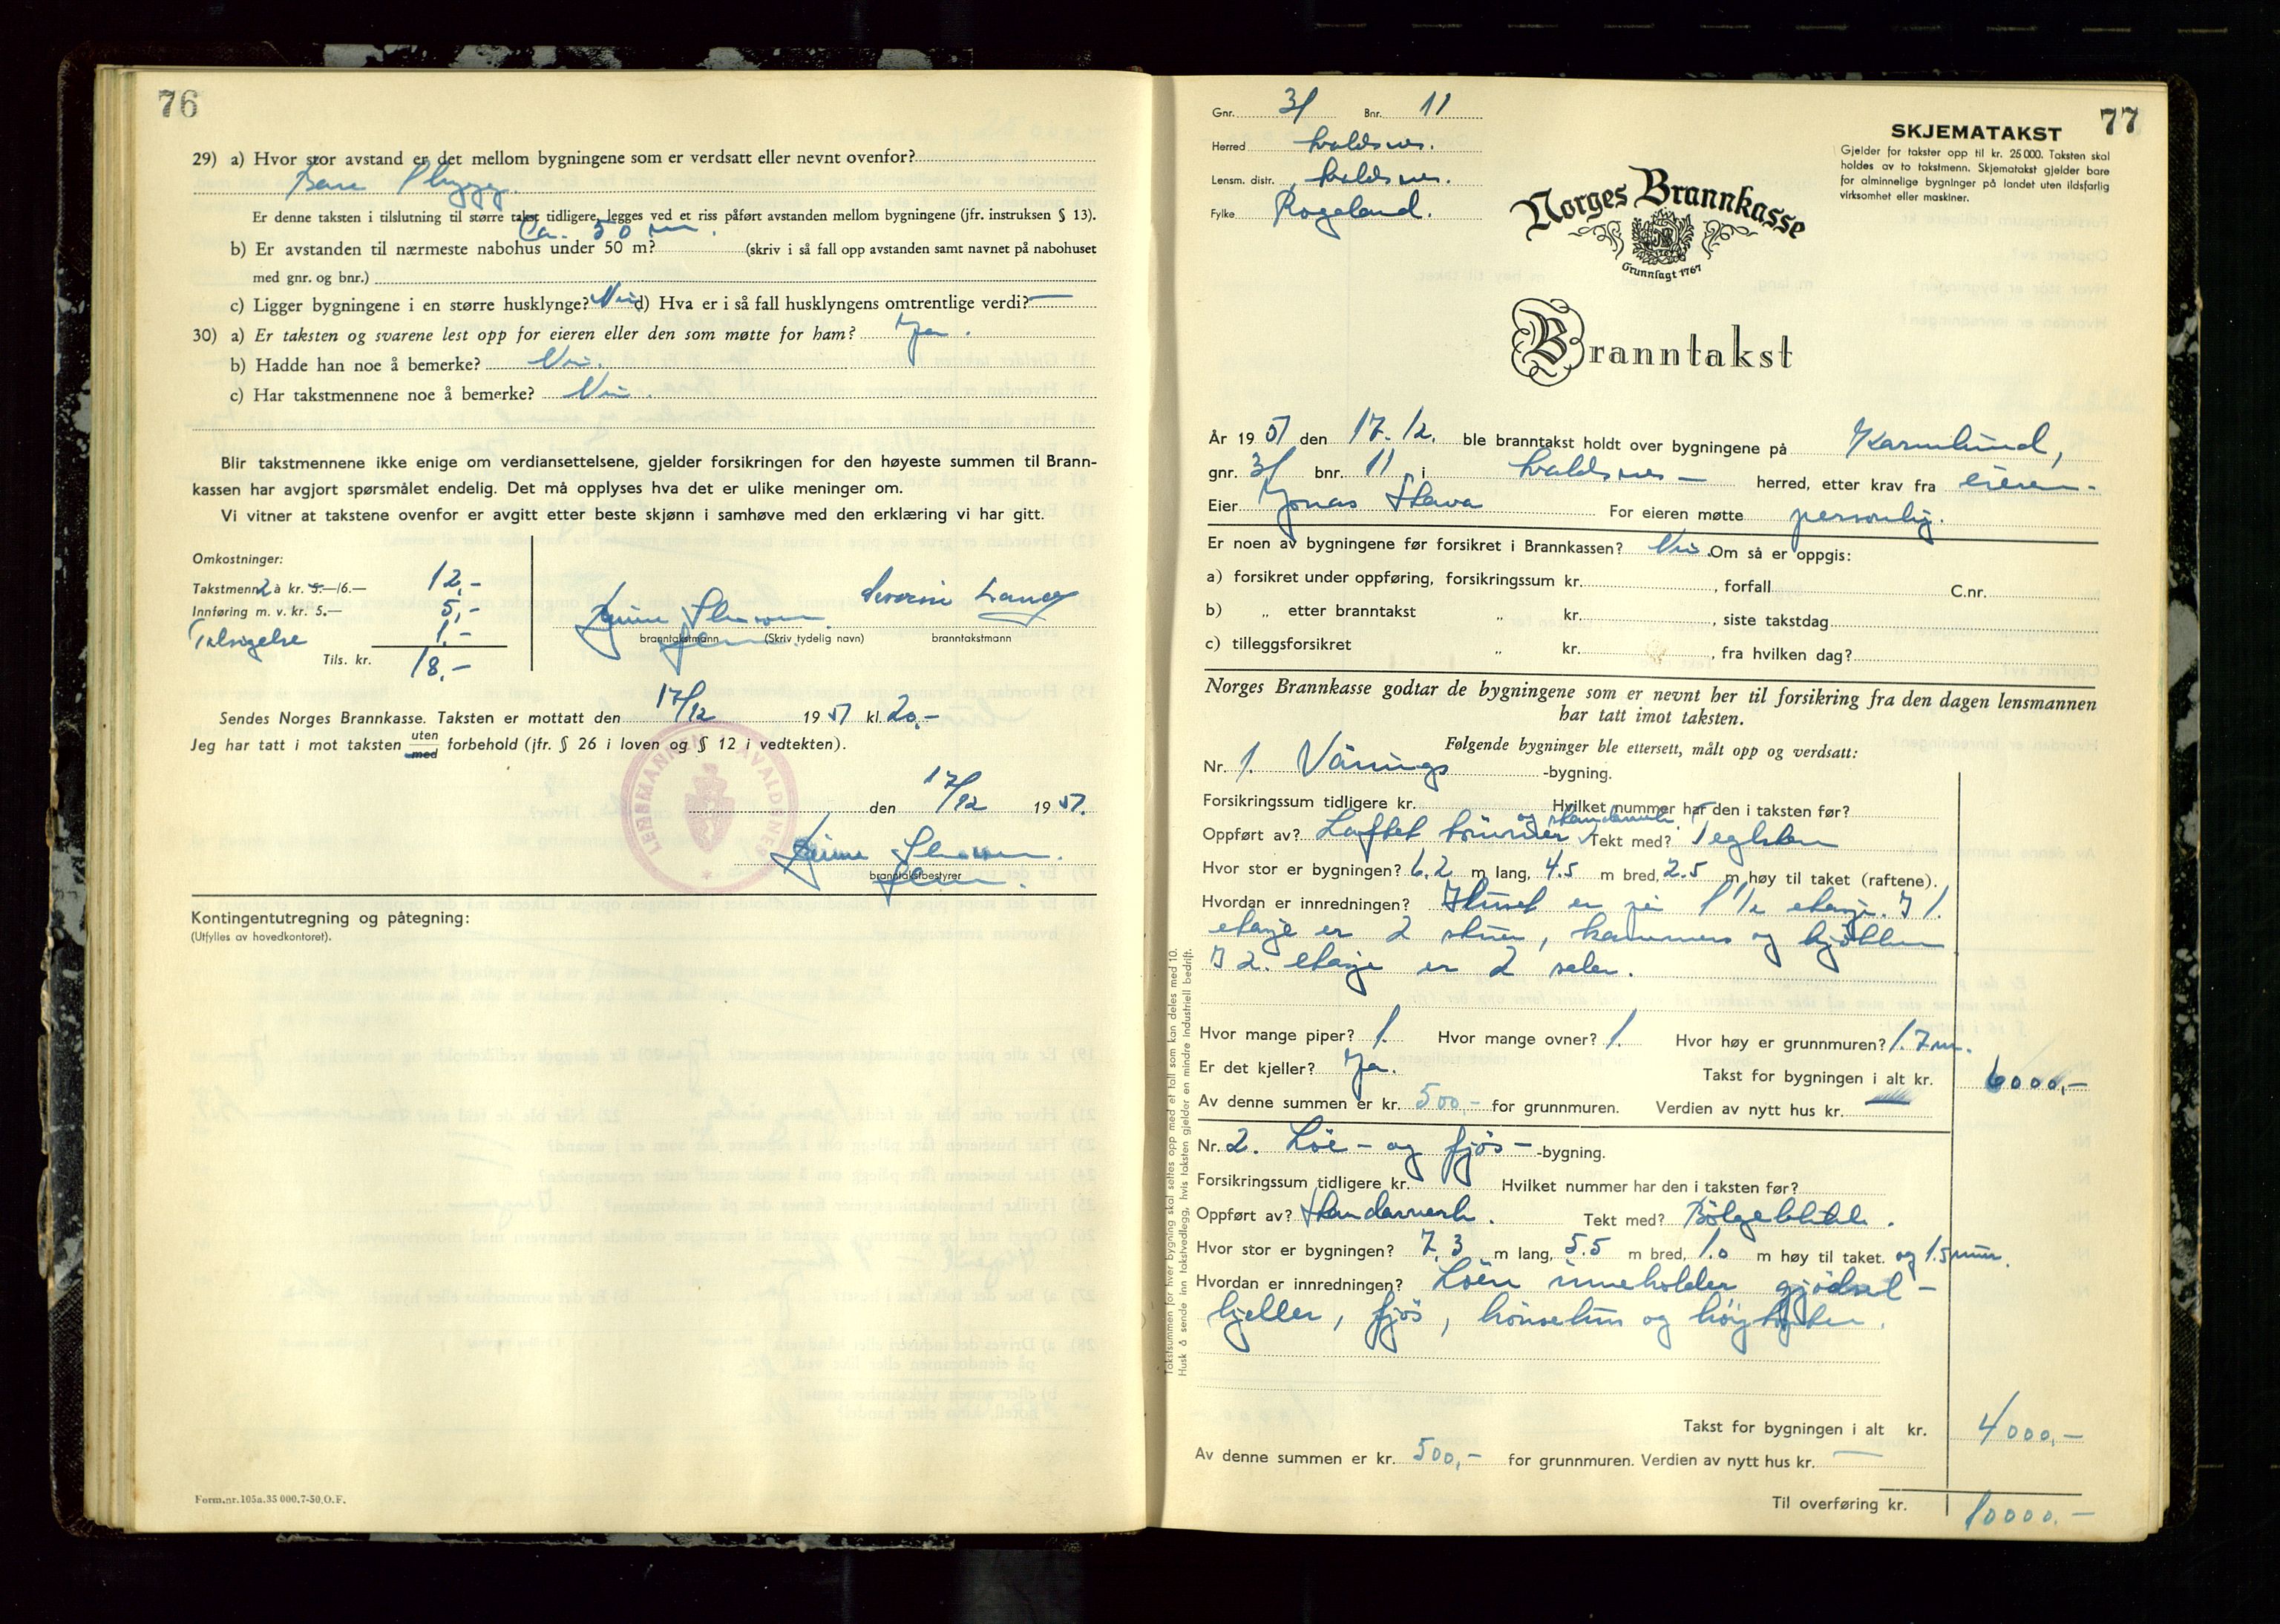 76
29) a) Hvor stor avstand er det mellom bygningene som er verdsatt eller nevnt ovenfor?
Bare 1 bygg.
Er denne taksten i tilslutning til større takst tidligere, legges ved et riss påført avstanden mellom bygningene (jfr. instruksen § 13).
Ca. 30 m.
b) Er avstanden til nærmeste nabohus under 50 m? (skriv i så fall opp avstanden samt navnet på nabohuset
med gnr. og bnr.)
c) Ligger bygningene i en større husklynge? Nei d) Hva er i så fall husklyngens omtrentlige verdi? —
30) a) Er taksten og svarene lest opp for eieren eller den som møtte for ham? Ja.
b) Hadde han noe å bemerke? Nei.
c) Har takstmennene noe å bemerke? Nei.
Blir takstmennene ikke enige om verdiansettelsene, gjelder forsikringen for den høyeste summen til Brann-
kassen har avgjort spørsmålet endelig. Det må opplyses hva det er ulike meninger om.
Vi vitner at takstene ovenfor er avgitt etter beste skjønn i samhøve med den erklæring vi har gitt.
Omkostninger:
Takstmenn 2 à kr. 5.—/6.— 12,-
Innføring m. v. kr. 5.— 5,-
Tilsigelse 1.-
Tils. kr. 18,-
Severin
branntakstmann (Skriv tydelig navn) branntakstmann
Sendes Norges Brannkasse. Taksten er mottatt den 17/12 1951 kl. 20,-
Jeg har tatt i mot taksten uten/med forbehold (jfr. § 26 i loven og § 12 i vedtekten).
LENSMANNEN I AVALDSNES
den 17/12 1951.
branntakstbestyrer
Kontingentutregning og påtegning:
(Utfylles av hovedkontoret).
Form.nr.105a.35 000.7-50.O.F.
77
Gnr. 31 Bnr. 11
Herred Avaldsnes.
Lensm. distr. Avaldsnes.
Fylke Rogaland.
SKJEMATAKST
Gjelder for takster opp til kr. 25 000. Taksten skal
holdes av to takstmenn. Skjematakst gjelder bare
for alminnelige bygninger på landet uten ildsfarlig
virksomhet eller maskiner.
Norges Brannkasse
Grunnlagt 1767
Branntakst
År 1951 den 17. 12. ble branntakst holdt over bygningene på Karmlund,
gnr. 31 bnr. 11 i Avaldsnes — herred, etter krav fra eieren.
Eier Jonas Stava For eieren møtte personlig.
Er noen av bygningene før forsikret i Brannkassen? Nei. Om så er oppgis:
a) forsikret under oppføring, forsikringssum kr. , forfall C.nr.
b) „ etter branntakst „ kr. , siste takstdag
c) tilleggsforsikret „ kr. , fra hvilken dag?
Norges Brannkasse godtar de bygningene som er nevnt her til forsikring fra den dagen lensmannen
har tatt imot taksten.
Følgende bygninger ble ettersett, målt opp og verdsatt:
Nr. 1. Vånings -bygning.
Forsikringssum tidligere kr. Hvilket nummer har den i taksten før?
og standerverk.
Oppført av? Laftet tømmer Tekt med? Teglsten
Hvor stor er bygningen? 6.2 m lang, 4.5 m bred, 2.5 m høy til taket (raftene).
Hvordan er innredningen? Huset er på 1 1/2 etasje. I 1.
etasje er 2 stuer, kammers og kjøkken
I 2. etasje er 2 saler.
Hvor mange piper? 1. Hvor mange ovner? 1. Hvor høy er grunnmuren? 1.7 m.
Er det kjeller? Ja. Takst for bygningen i alt kr. 6000,-
Av denne summen er kr. 500,- for grunnmuren. Verdien av nytt hus kr.
Takstsummen for hver bygning skal settes opp med et tall som kan deles med 10.
Husk å sende inn takstvedlegg, hvis taksten gjelder en mindre industriell bedrift.
Nr. 2. Løe- og fjøs- -bygning.
Forsikringssum tidligere kr. Hvilket nummer har den i taksten før?
Oppført av? Standerverk. Tekt med? Bølgeblikk.
Hvor stor er bygningen? 7.3 m lang, 5.5 m bred, 1.0 m høy til taket. og 1.5 mur.
Hvordan er innredningen? Løen inneholder gjødsel-
kjeller, fjøs, hønsehus og
Takst for bygningen i alt kr. 4000,-
Av denne summen er kr. 500,- for grunnmuren. Verdien av nytt hus kr. —
Til overføring kr. 10000.-